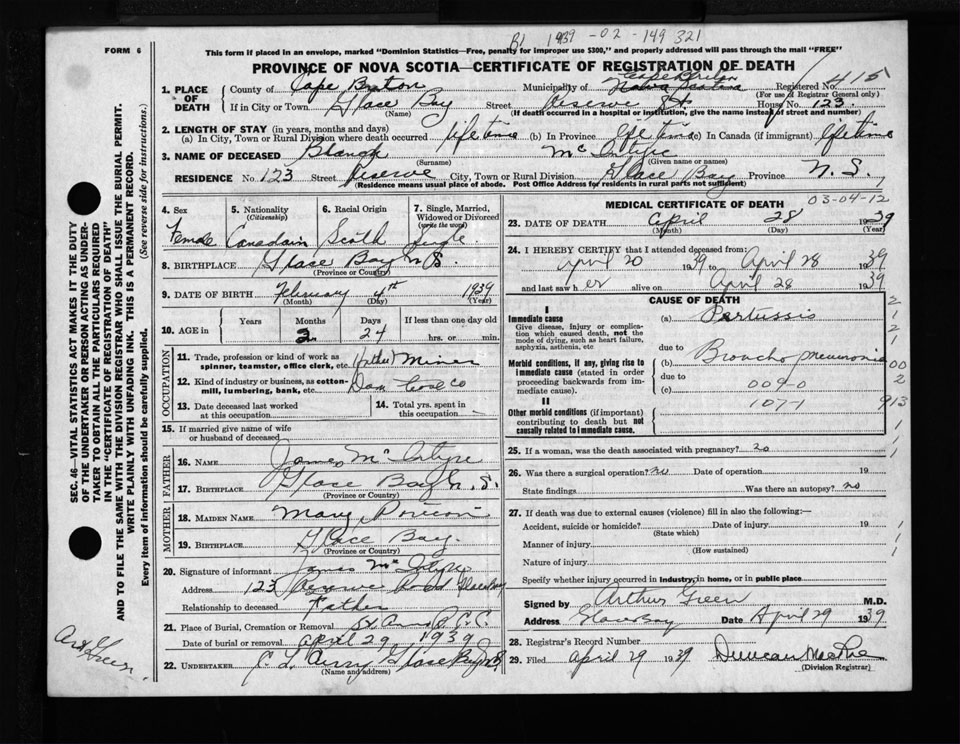 B1 1939-02-149321
FORM 6
This form if placed in an envelope, marked "Dominion Statistics—Free, penalty for improper use $300," and properly addressed will pass through the mail "FREE"
PROVINCE OF NOVA SCOTIA—CERTIFICATE OF REGISTRATION OF DEATH
1. PLACE OF DEATH
County of Cape Breton Municipality of Nova Scotia Cape Breton Registered No. 415
(For use of Registrar General only)
If in City or Town Glace Bay Street Reserve St House No. 123
(Name) (If death occurred in a hospital or institution, give the name instead of street and number)
2. LENGTH OF STAY (in years, months and days)
(a) In City, Town or Rural Division where death occurred life time (b) In Province life time (c) In Canada (if immigrant) life time
3. NAME OF DECEASED Blanch McIntyre
(Surname) (Given name or names)
RESIDENCE No. 123 Street Reserve City, Town or Rural Division Glace Bay Province N.S.
(Residence means usual place of abode. Post Office Address for residents in rural parts not sufficient)
SEC. 46—VITAL STATISTICS ACT MAKES IT THE DUTY
OF THE UNDERTAKER OR PERSON ACTING AS UNDER-
TAKER TO OBTAIN ALL THE PARTICULARS REQUIRED
IN THE "CERTIFICATE OF REGISTRATION OF DEATH"
AND TO FILE THE SAME WITH THE DIVISION REGISTRAR WHO SHALL ISSUE THE BURIAL PERMIT.
WRITE PLAINLY WITH UNFADING INK. THIS IS A PERMANENT RECORD.
Every item of information should be carefully supplied. (See reverse side for instructions.)
4. Sex
Female
5. Nationality
(Citizenship)
Canadain
6. Racial Origin
Scoth
7. Single, Married,
Widowed or Divorced
(write the word)
Single
8. BIRTHPLACE Glace Bay N.S.
(Province or Country)
9. DATE OF BIRTH February 4th 1939
(Month) (Day) (Year)
10. AGE in
Years Months Days If less than one day old
2 24 hrs. or min.
OCCUPATION
11. Trade, profession or kind of work as
spinner, teamster, office clerk, etc. (father) Miner
12. Kind of industry or business, as cotton-
mill, lumbering, bank, etc. Dom Coal Co
13. Date deceased last worked
at this occupation
14. Total yrs. spent in
this occupation
15. If married give name of wife
or husband of deceased
FATHER
16. NAME James McIntyre
17. BIRTHPLACE Glace Bay N.S.
(Province or Country)
MOTHER
18. MAIDEN NAME Mary
19. BIRTHPLACE Glace Bay.
(Province or Country)
20. Signature of informant James McIntyre
Address 123 Reserve Glace Bay
Relationship to deceased Father
21. Place of Burial, Cremation or Removal St Anns R.C.C.
Date of burial or removal april 29, 1939
22. UNDERTAKER Glace Bay NS
(Name and address)
Art Green
MEDICAL CERTIFICATE OF DEATH
03-04-12
23. DATE OF DEATH April 28 1939
(Month) (Day) (Year)
24. I HEREBY CERTIFY that I attended deceased from:
April 20 1939 to April 28 1939
and last saw her alive on April 28 1939
CAUSE OF DEATH
I
Immediate cause
Give disease, injury or complica-
tion which caused death, not the
mode of dying, such as heart failure,
asphyxia, asthenia, etc
(a) Pertussis
due to
Morbid conditions, if any, giving rise to
immediate cause (stated in order
proceeding backwards from im-
mediate cause).
(b) Broncho pneumonia
due to
(c) 009-0
II
Other morbid conditions (if important)
contributing to death but not
causally related to immediate cause.
107-1
913
25. If a woman, was the death associated with pregnancy? no
26. Was there a surgical operation? no Date of operation 19
State findings Was there an autopsy? no
27. If death was due to external causes (violence) fill in also the following:—
Accident, suicide or homicide? Date of injury 19
(State which)
Manner of injury
(How sustained)
Nature of injury
Specify whether injury occurred in industry, in home, or in public place
Signed by Arthur Green M.D.
Address Glace Bay Date April 29 1939
28. Registrar's Record Number
29. Filed April 29 1939 Duncan MacRae
(Division Registrar)